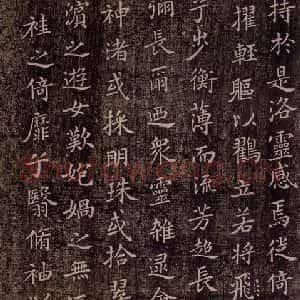 持於是洛靈感焉徙倚
擢輕軀以鶴立若將飛
步衡薄而流芳超長
彌長爾迺眾靈雜遝
神渚或採明珠或拾翠
濱之遊女歎匏媧之無
袿之倚靡兮翳脩袖
Shufawang.CN